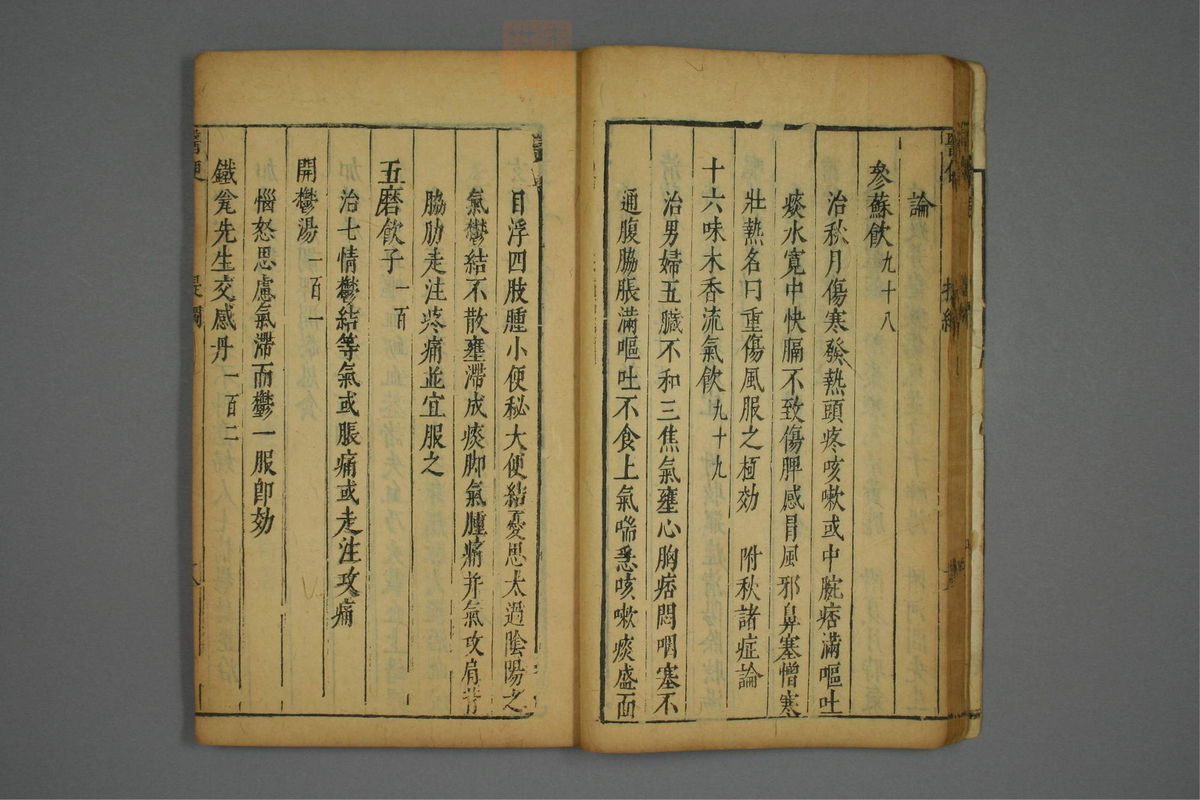 論
參蘇飲九十八
治秋月傷寒發熱頭疼咳嗽或中脘痞滿嘔吐
痰水寬中快膈不致傷脾感冒風邪鼻塞憎寒
壯熱名曰重傷風服之極効 附秋諸症論
十六味木香流氣飲九十九
治男婦五臟不和三焦氣壅心胸痞悶咽塞不
通腹脇脹滿嘔吐不食上氣喘急咳嗽痰盛面
目浮四肢腫小便秘大便結憂思太過陰陽之
氣鬱結不散壅滯成痰脚氣腫痛并氣攻肩背
脇肋走注疼痛並宜服之
五磨飲子一百
治七情鬱結等氣或脹痛或走注攻痛
開鬱湯一百一
惱怒思慮氣滯而鬱一服卽効
鐵瓮先生交感丹一百二
醫便
提綱
八